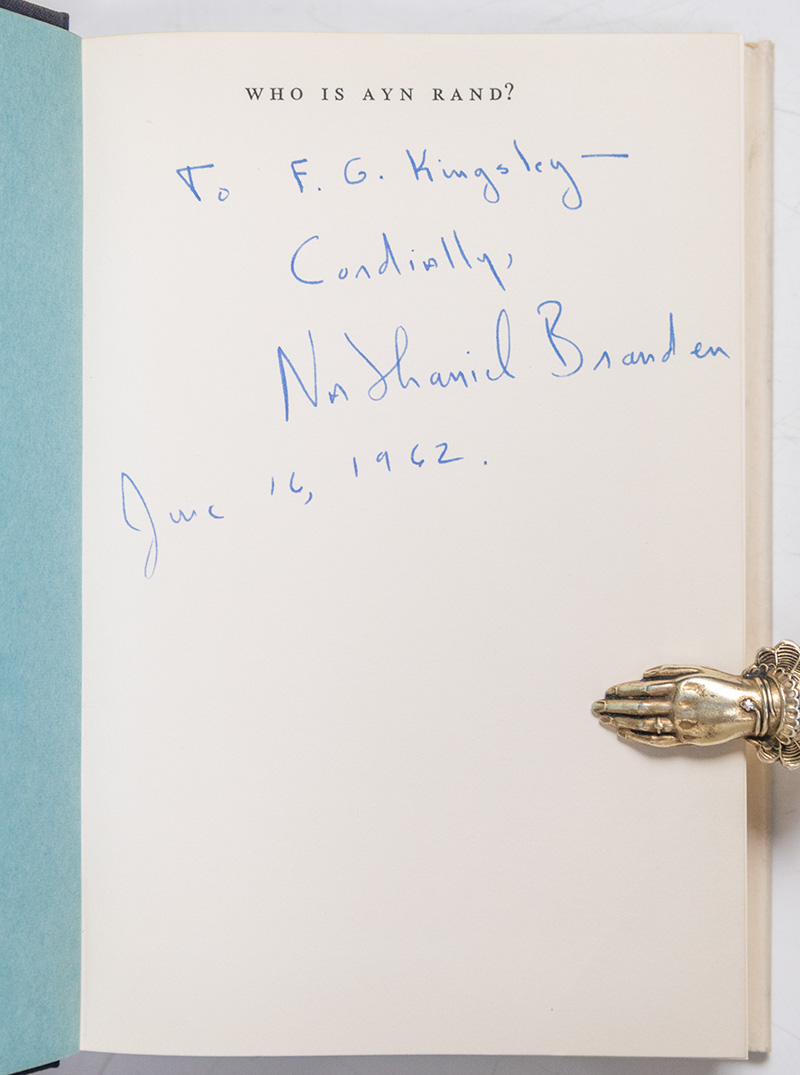 WHO IS AYN RAND?
To F. G. Kingsley—
Cordially,
Nathaniel Branden
June 16, 1962.